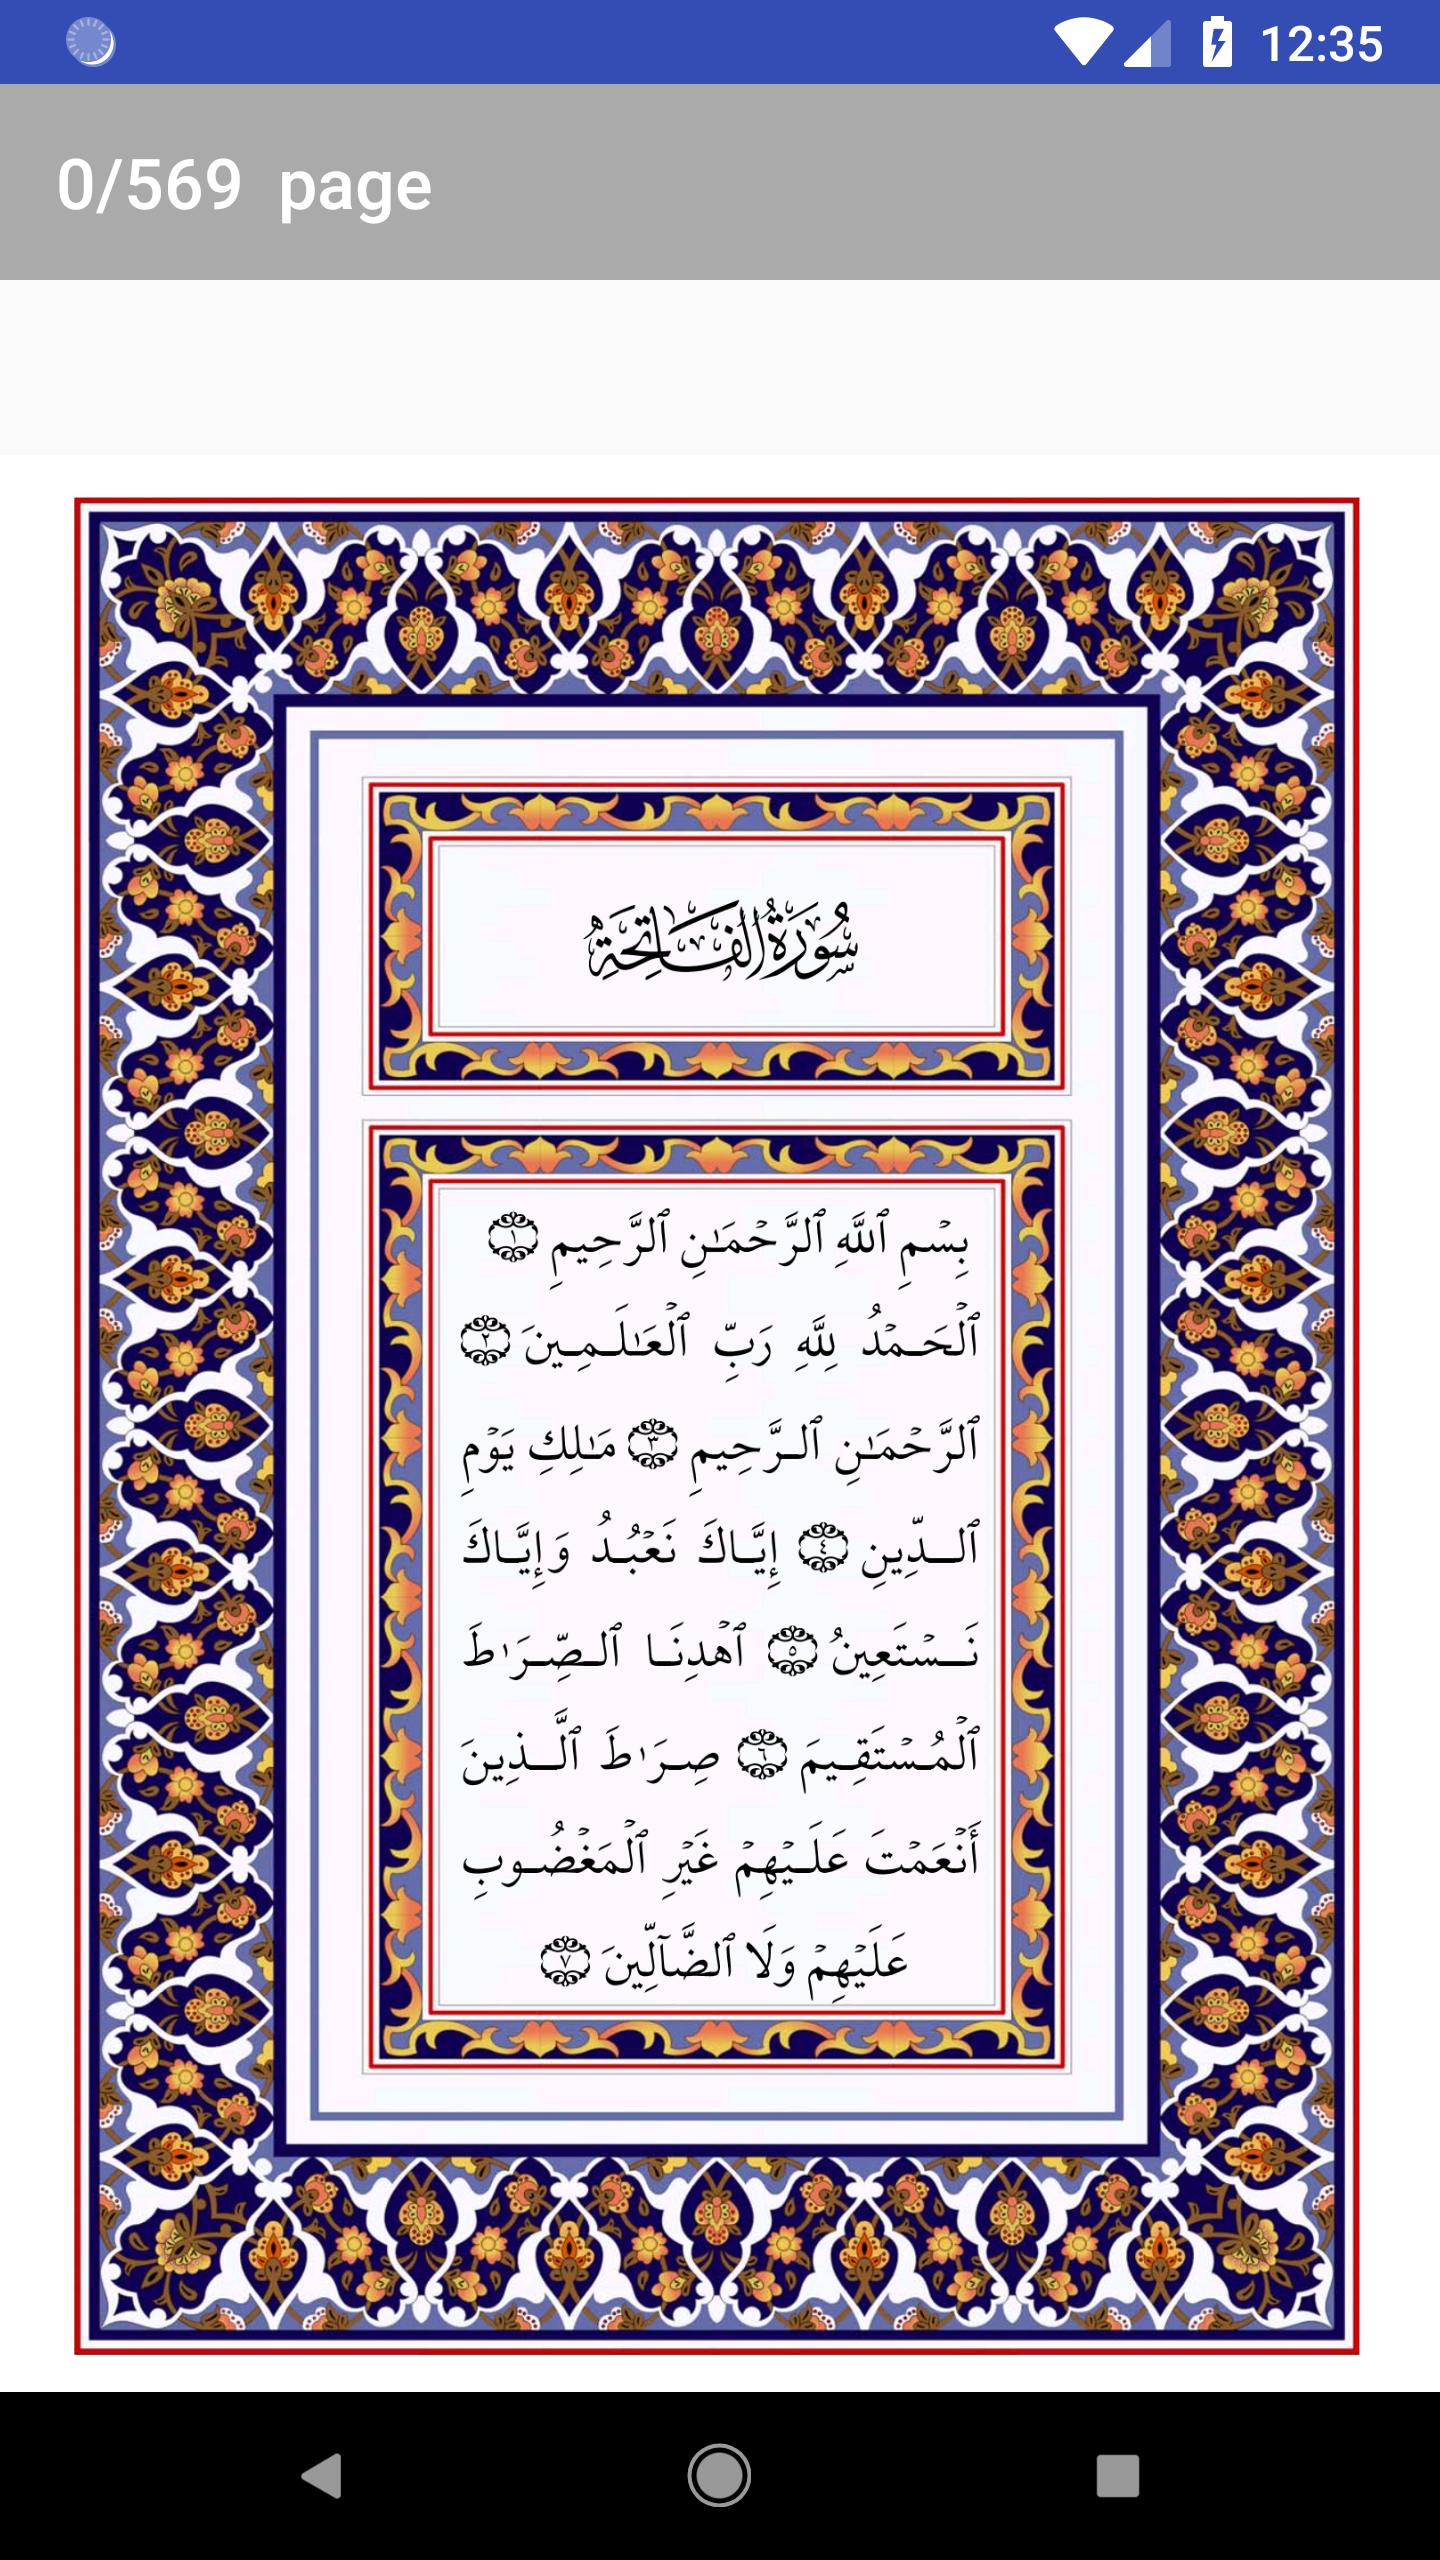 12:35
0/569 page
سُورَةُ الفَاتِحَةِ
بِسۡمِ ٱللَّهِ ٱلرَّحۡمَـٰنِ ٱلرَّحِيمِ ١
ٱلۡحَـمۡدُ لِلَّهِ رَبِّ ٱلۡعَـٰلَـمِـينَ ٢
ٱلرَّحۡمَـٰنِ ٱلـرَّحِيمِ ٣ مَـٰلِكِ يَوۡمِ
ٱلــدِّينِ ٤ إِيَّـاكَ نَعۡبُـدُ وَإِيَّـاكَ
نَــسۡتَعِينُ ٥ ٱهۡدِنَـا ٱلـصِّـرَٰطَ
ٱلۡمُـسۡتَقِـيمَ ٦ صِـرَٰطَ ٱلَّــذِينَ
أَنۡعَمۡتَ عَلَـيۡهِمۡ غَيۡرِ ٱلۡمَغۡضُـوبِ
عَلَيۡهِمۡ وَلَا ٱلضَّآلِّينَ ٧